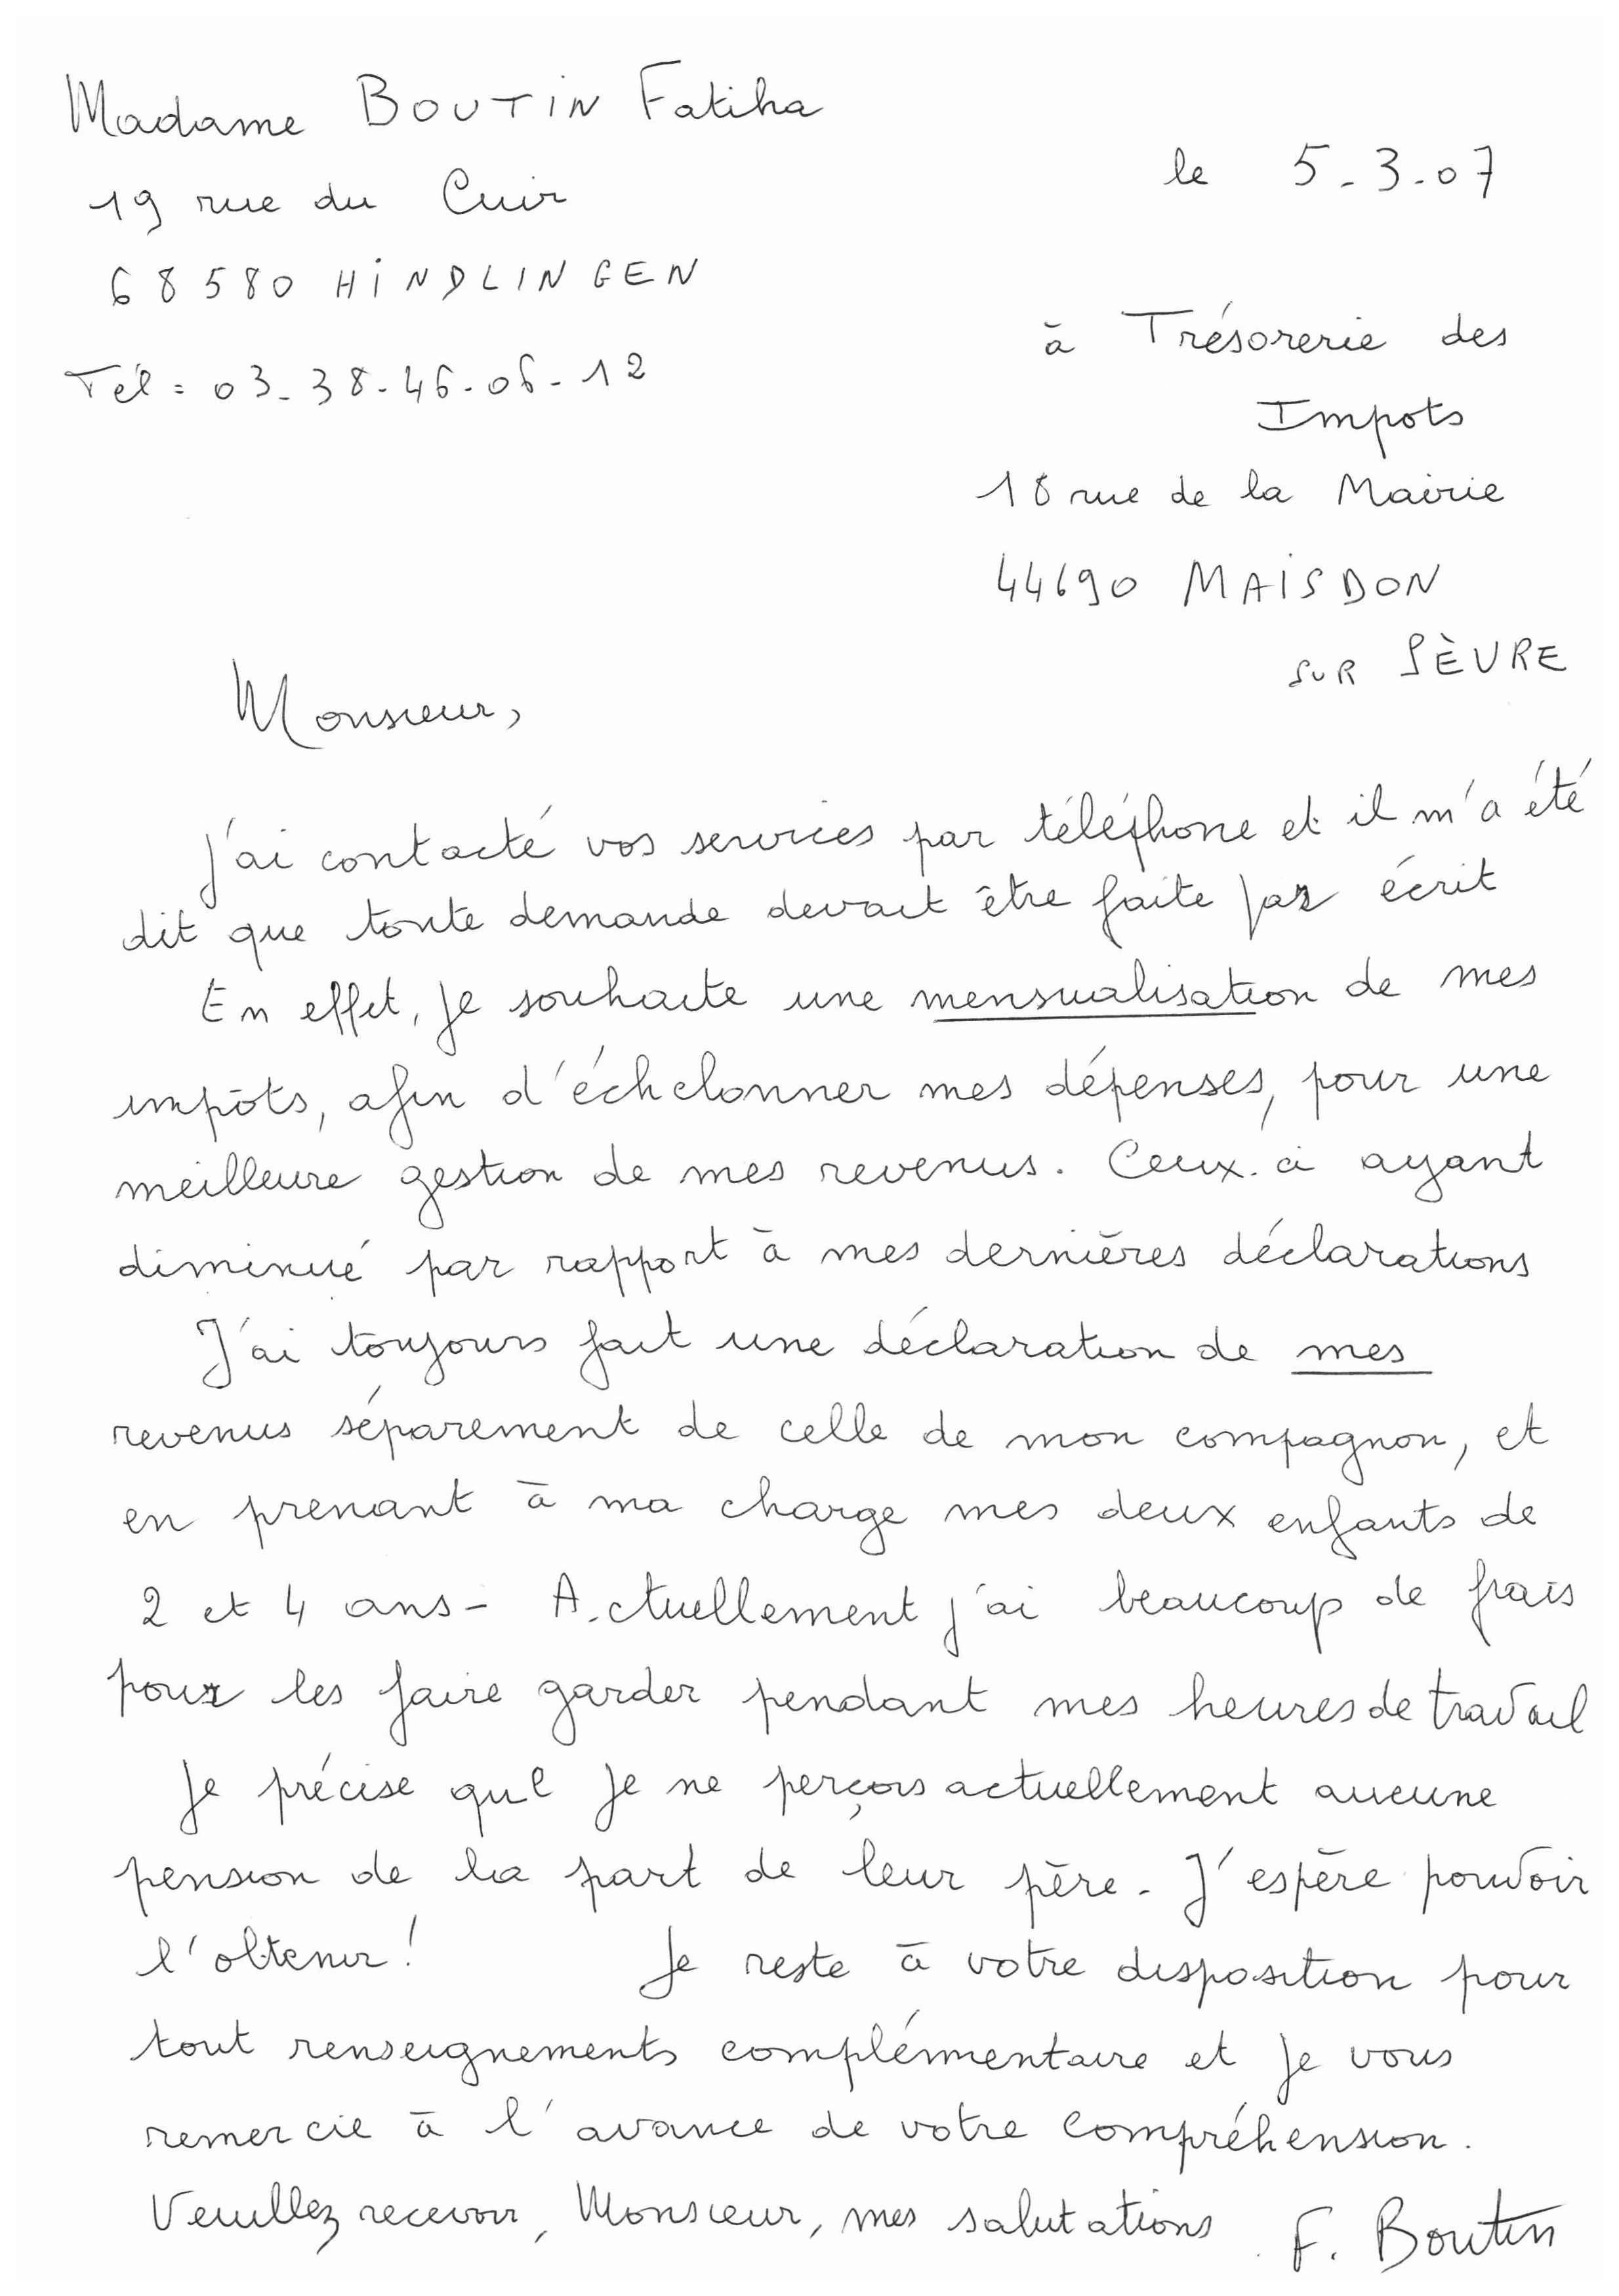 Madame BOUTIN Fatiha
le 5.3.07
19 rue du Cuir
68580 HINDLINGEN
à Trésorerie des
Tél : 03-38-46-06-12
Impots
18 rue de la Mairie
44690 MAISDON
SUR SÈVRE
Monsieur,
J'ai contacté vos services par téléphone et il m'a été
dit que toute demande devait être faite par écrit
En effet, je souhaite une mensualisation de mes
impôts, afin d'échelonner mes dépenses, pour une
meilleure gestion de mes revenus. Ceux-ci ayant
diminué par rapport à mes dernières déclarations
J'ai toujours fait une déclaration de mes
revenus séparement de celle de mon compagnon, et
en prenant à ma charge mes deux enfants de
2 et 4 ans - Actuellement j'ai beaucoup de frais
pour les faire garder pendant mes heures de travail
Je précise que je ne perçois actuellement aucune
pension de la part de leur père. J'espère pouvoir
l'obtenir ! Je reste à votre disposition pour
tout renseignements complémentaire et je vous
remercie à l'avance de votre compréhension.
Veuillez recevoir, Monsieur, mes salutations F. Boutin